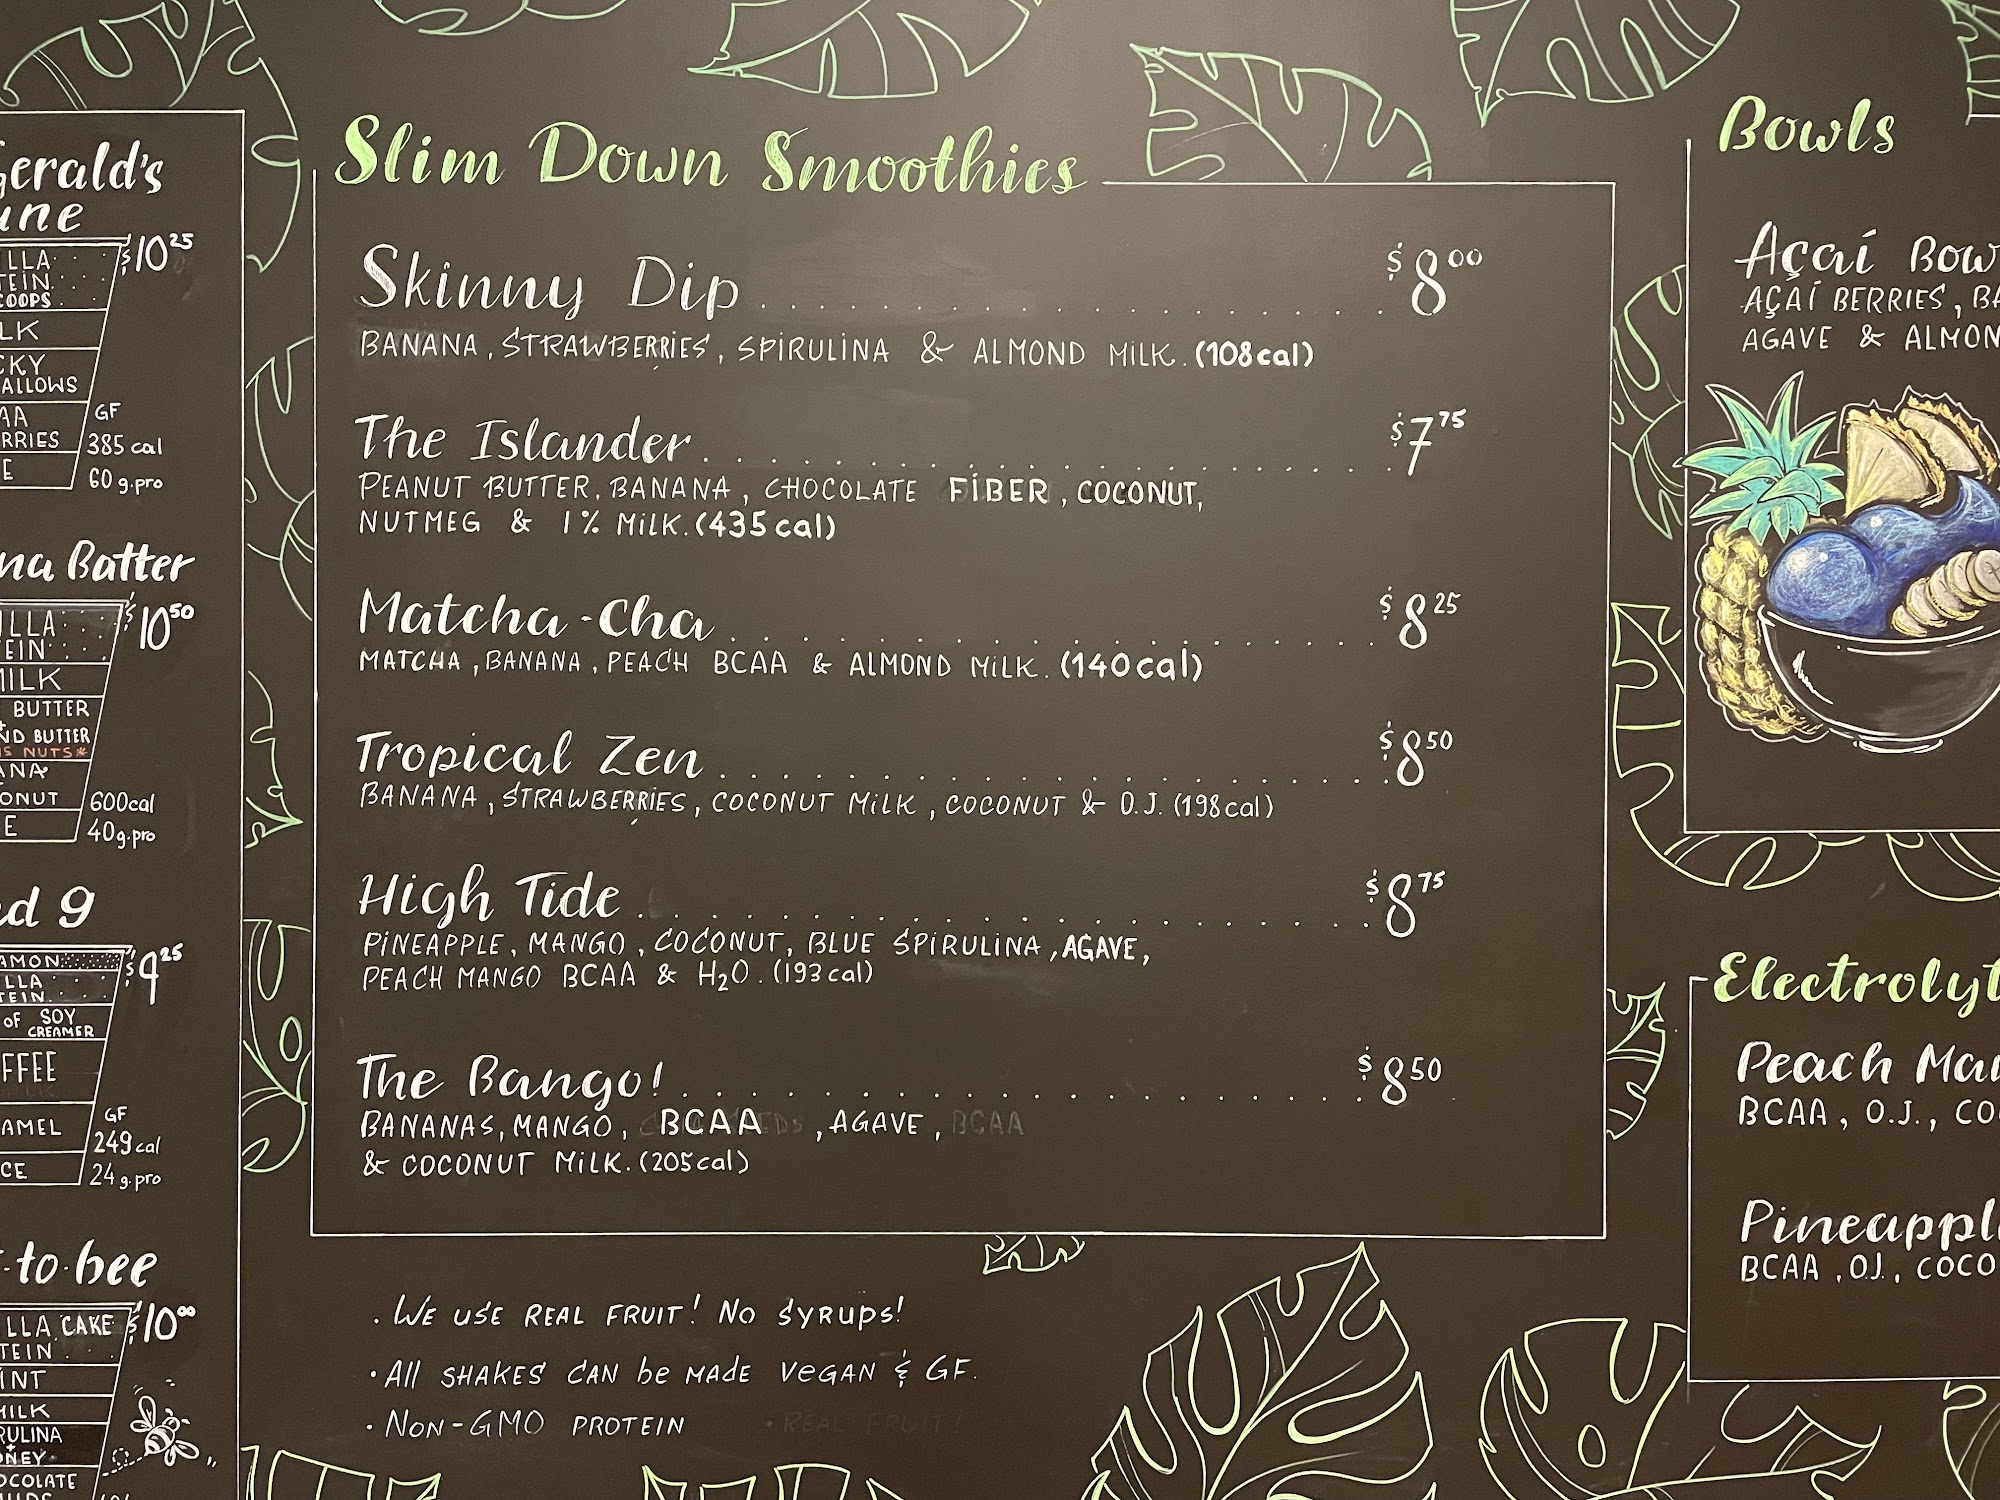 Gerald's
une
$10²⁵
LLA
TEIN
COOPS
LK
CKY
ALLOWS
AA
RRIES
E
GF
385 cal
60 g.pro
na Batter
$10⁵⁰
LLA
EIN
MILK
BUTTER
+
ND BUTTER
NUTS*
ANA
ONUT
E
600cal
40g.pro
d 9
$9²⁵
AMON
LLA
TEIN
OF SOY
CREAMER
FFEE
AMEL
CE
GF
249cal
24 g.pro
-to-bee
$10⁰⁰
LLA CAKE
TEIN
INT
MILK
RULINA
+
ONEY
OCOLATE
Slim Down Smoothies
Skinny Dip . . . . . . . . . . . . . . . . . . $8⁰⁰
BANANA, STRAWBERRIES, SPIRULINA & ALMOND MILK. (108cal)
The Islander . . . . . . . . . . . . . . . . . . $7⁷⁵
PEANUT BUTTER, BANANA, CHOCOLATE FIBER, COCONUT,
NUTMEG & 1% MILK. (435cal)
Matcha-Cha . . . . . . . . . . . . . . . . . . $8²⁵
MATCHA, BANANA, PEACH BCAA & ALMOND MILK. (140cal)
Tropical Zen . . . . . . . . . . . . . . . . . . $8⁵⁰
BANANA, STRAWBERRIES, COCONUT MILK, COCONUT & O.J. (198cal)
High Tide . . . . . . . . . . . . . . . . . . $8⁷⁵
PINEAPPLE, MANGO, COCONUT, BLUE SPIRULINA, AGAVE,
PEACH MANGO BCAA & H₂O. (193cal)
The Bango! . . . . . . . . . . . . . . . . . . $8⁵⁰
BANANAS, MANGO, BCAA, AGAVE, BCAA
& COCONUT MILK. (205cal)
· We use REAL FRUIT! No syrups!
· All SHAKES CAN be MAde VeGAN & GF.
· Non-GMO PROTEIN
· REAL FRUIT!
Bowls
Açaí Bow
AÇAÍ BERRIES, BA
AGAVE & ALMON
Electrolyt
Peach Ma
BCAA, O.J., CO
Pineappl
BCAA, O.J., COCO